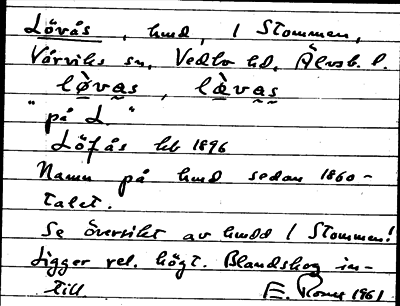 Lövås, hmd, 1 Stommen,
Vårviks sn, Vedbo hd, Älvsb. l.
lø̀vas, læ̀vas
"på L."
Löfås hb 1896
Namn på hmd sedan 1860-
talet.
Se översikt av hmdd / Stommen!
Ligger rel. högt. Blandskog in-
till E. 1961